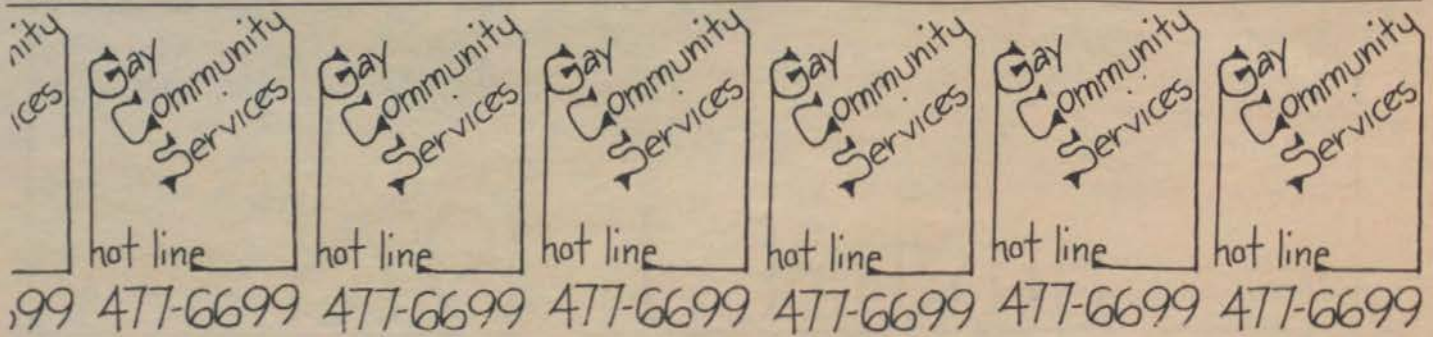 nity
ices
99
Gay
Community
Services
hot line
477-6699
Gay
Community
Services
hot line
477-6699
Gay
Community
Services
hot line
477-6699
Gay
Community
Services
hot line
477-6699
Gay
Community
Services
hot line
477-6699
Gay
Community
Services
hot line
477-6699